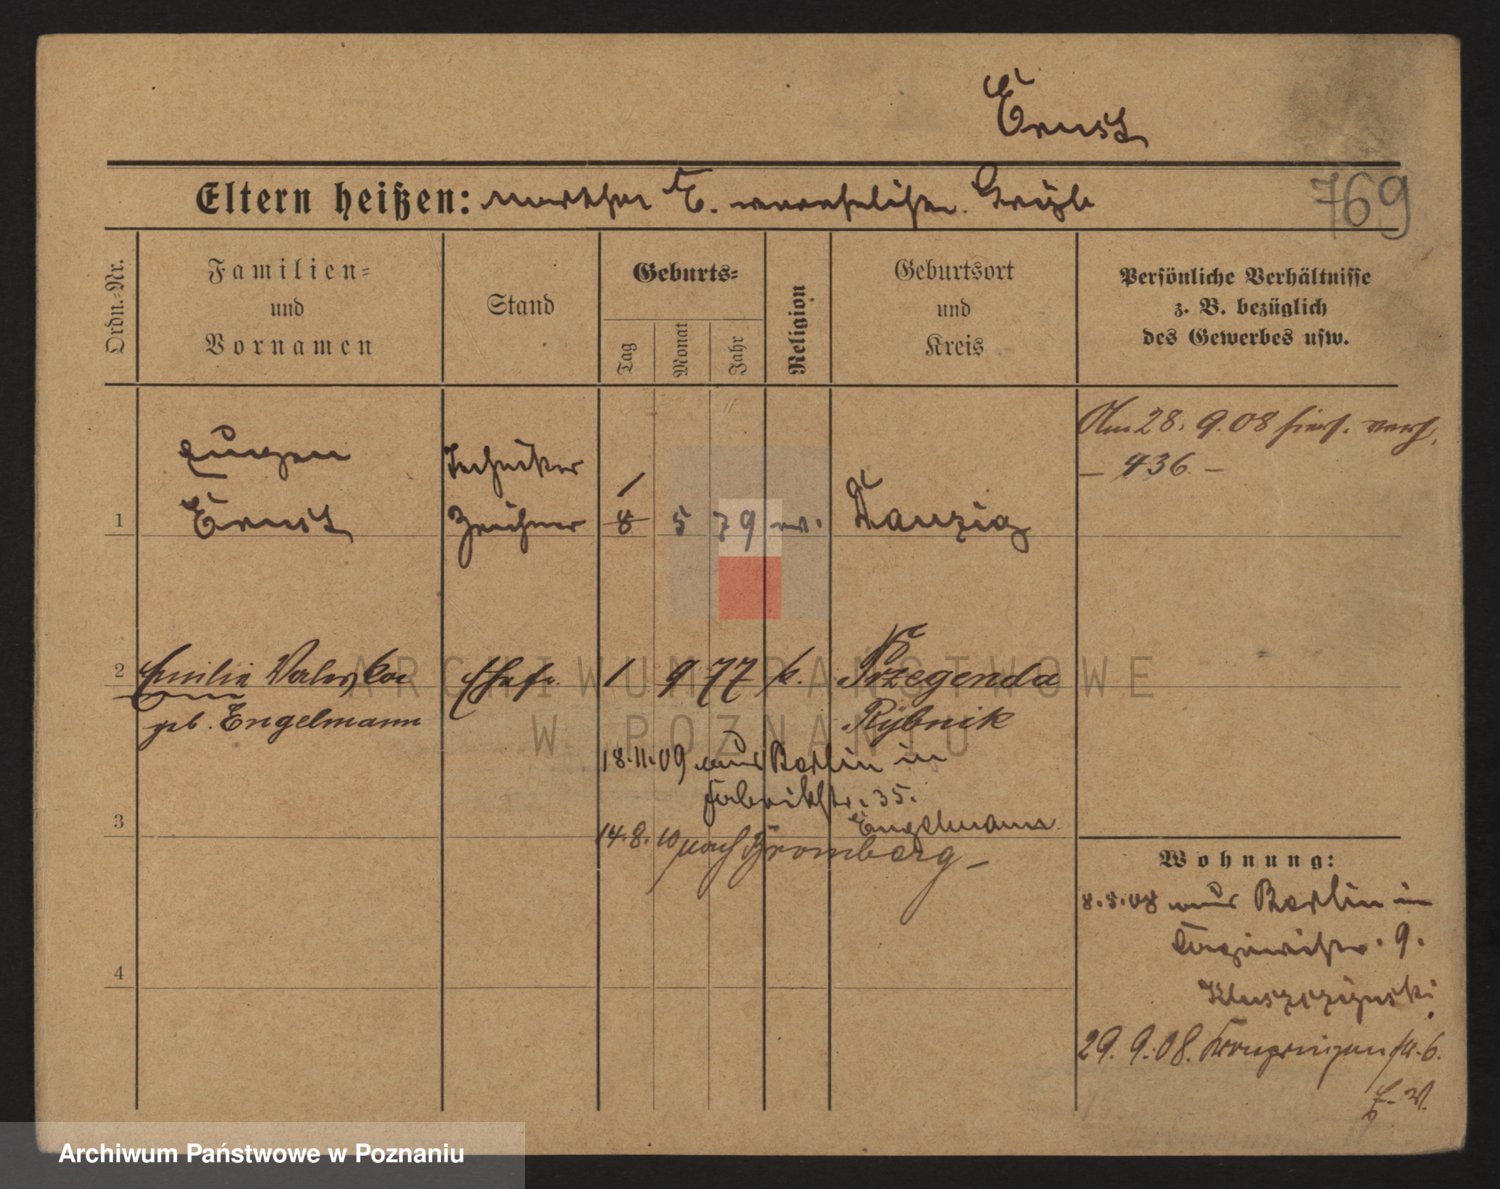 Ernst
Eltern heißen: E. Geizb
769
Ordn.=Nr.
Familien=
und
Vornamen
Stand
Geburts=
Tag
Monat
Jahr
Religion
Geburtsort
und
Kreis
Persönliche Verhältnisse
z. B. bezüglich
des Gewerbes usw.
Am 28. 9. 08 hier. verh.
— 436 —
Eugen
Ernst
Techniker
Zeichner
1
1 8 5 79 ev. Danzig
2 Emilie Valeska Ehefr. 1 9 77 k. Przegenda
geb. Engelmann Rybnik
18.11.09 aus Berlin in
Fabrikstr. 35.
Engelmann
3
14.8.10 nach Bromberg —
Wohnung:
8.5.08 aus Berlin in
9.
Kluszczynski
29. 9. 08. Kronprinzenstr. 6.
E. W.
4
ARCHIWUM PAŃSTWOWE
W POZNANIU
Archiwum Państwowe w Poznaniu